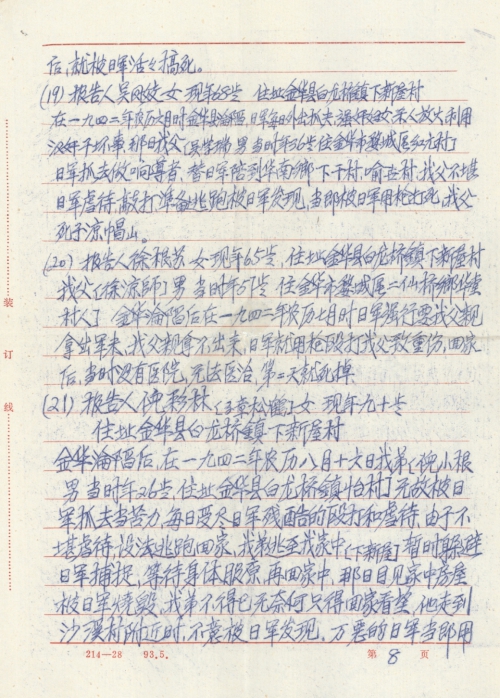 后,就被日军活活搞死。
(19) 报告人吴 女 现年68岁 住址金华县白龙桥镇下新屋村
在一九四二年农历七月时金华县沦陷,日军每日外出抓夫 女杀人放火利用
汉奸干坏事,那日我父 男 当时年36岁住金华市婺城区红 村
日军抓去做响导者,替日军带到华南乡下干村 村,我父不堪
日军虐待,敲打,准备逃跑被日军发现,当即被日军用枪打死,我父
死于凉帽山。
(20) 报告人徐根苏 女 现年65岁 住址金华县白龙桥镇下新屋村
我父[徐 ]男 当时年57岁 住金华市婺城区二仙桥乡 
村人] 金华沦陷后在一九四二年农历七月时日军强行要我父亲
拿出军米,我父亲拿不出来,日军就用枪殴打我父致重伤,回家
后,当时没有医院,无法医治,第二天就死掉。
(21) 报告人倪 林 女 现年九十岁
住址金华县白龙桥镇下新屋村
金华沦陷后,在一九四二年农历八月十六日我弟[倪小根
男 当时年26岁,住址金华县白龙桥镇 村]无故被日
军抓去当苦力,每日受尽日军残酷的殴打和虐待,由于不
堪虐待,设法逃跑回家,我弟逃至我家中[下新屋]暂时躲避
日军捕捉,等待身体服原,再回家中,那日目见家中房屋
被日军烧毁,我弟不得已无奈何只得回家看望,他走到
沙溪村附近时,不意被日军发现,万恶的日军当即用
装
订
线
214—28 93.5.
第 8 页